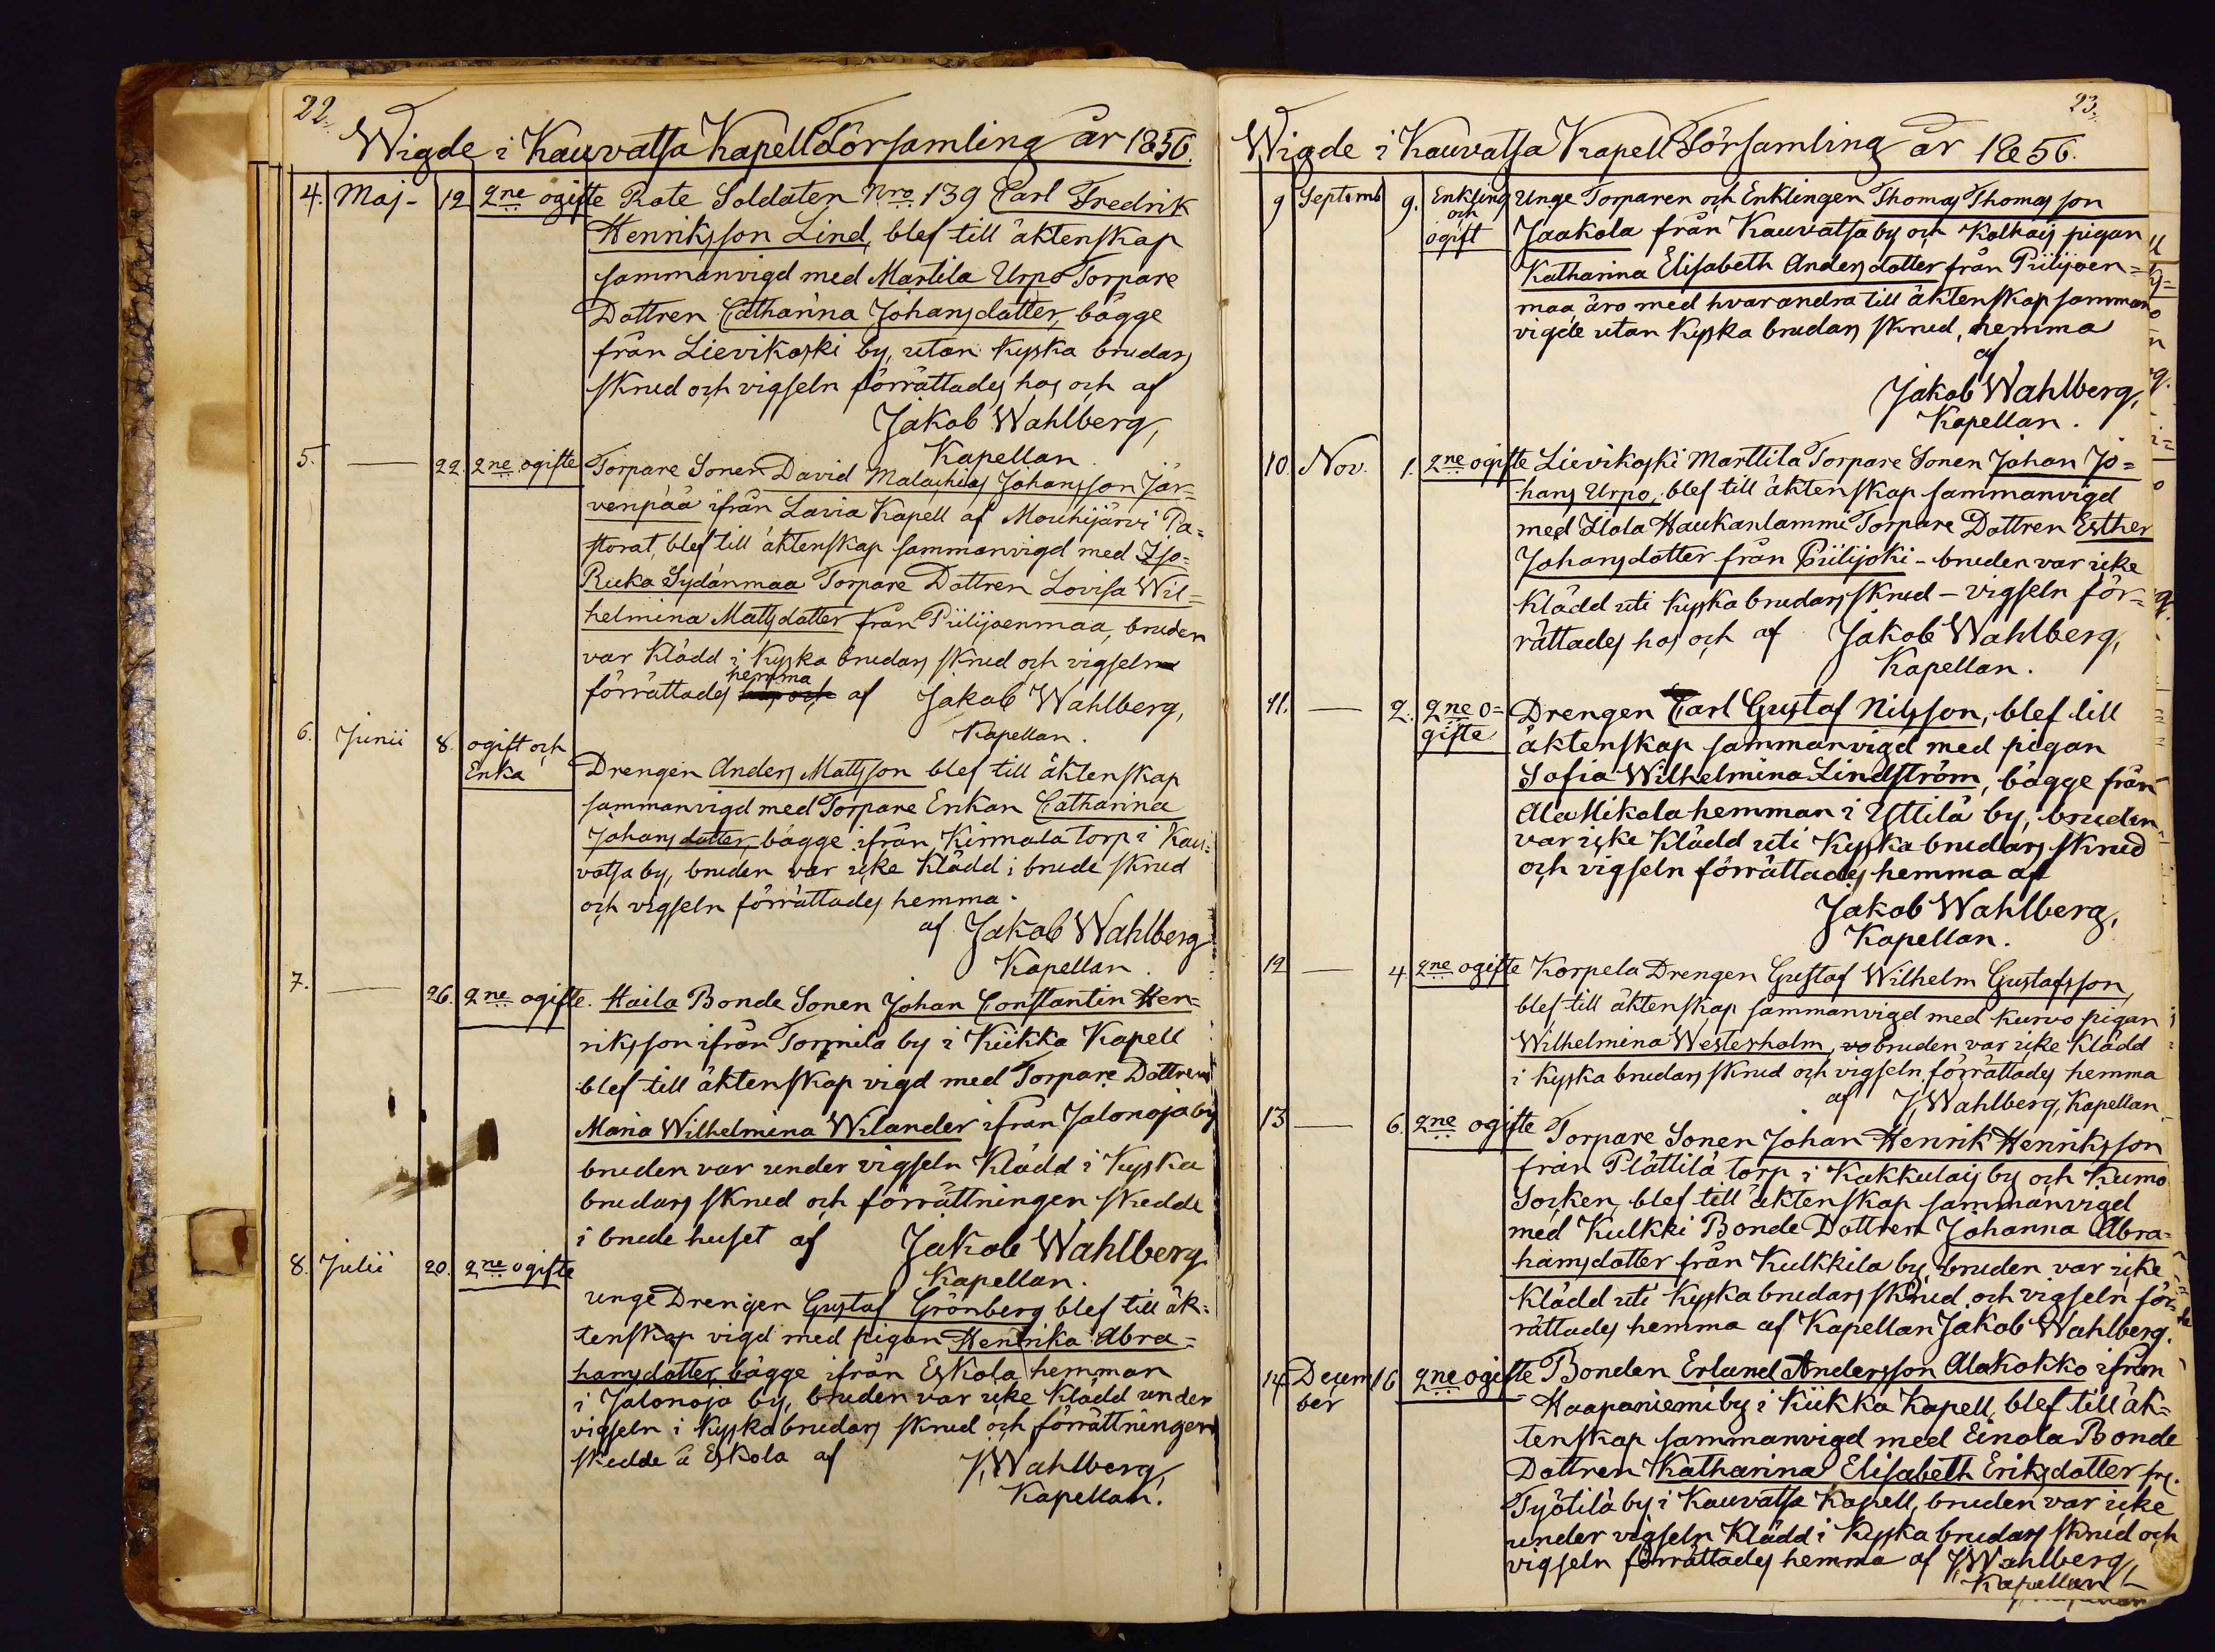 22.
Wigde i Kauvatsa Kapell Församling år 1856.
4. Maj - 12 2ne ogifte Rote Soldaten Nro 139 Carl Fredrik
Henriksson Lind, blef till äktenskap
sammanvigd med Martila Urpo Torpare
Dottren Catharina Johansdotter, bägge
från Lievikoski by, utan kyska brudars
skrud och vigseln förrättades hos och af
Jakob Wahlberg,
Kapellan
5. — 22. 2ne ogifte Torpare Sonen David Malachias Johansson Jär=
venpää ifrån Lavia Kapell af Mouhijärvi Pa=
storat, blef till äktenskap sammanvigd med Iso=
Ruka Sydänmaa Torpare Dottren Lovisa Wil=
helmina Mattsdotter från Piilijoenmaa, bruden
var klädd i kyska brudars skrud och vigseln
hemma
förrättades hos och af Jakob Wahlberg,
Kapellan.
6. Junii 8. ogift och
Enka
Drengen Anders Mattsson blef till äktenskap
sammanvigd med Torpare Enkan Catharina
Johansdotter, bägge ifrån Kirmola torp i Kau=
vatsa by, bruden var icke klädd i brude skrud
och vigseln förrättades hemma.
af Jakob Wahlberg
Kapellan.
7. — 26. 2ne ogifte. Haila Bonde Sonen Johan Constantin Hen=
riksson ifrån Tormila by i Kiikka Kapell
blef till äktenskap vigd med Torpare Dottren
Maria Wilhelmina Wilander ifrån Jalonoja by
bruden var under vigseln klädd i kyska
brudars skrud och förrättningen skedde
i brude huset af Jakob Wahlberg
Kapellan.
8. Julii 20. 2ne ogifte
unge Drengen Gustaf Grönberg blef till äk=
tenskap vigd med pigan Henrika Abra=
hamsdotter, bägge ifrån Eskola hemman
i Jalonoja by, bruden var icke klädd under
vigseln i kyska brudars skrud och förrättningen
skedde å Eskola af J. Wahlberg,
Kapellan.
23.
Wigde i Kauvatsa Kapell Församling år 1856.
9 Septemb 9. Enkling
och
ogift
Unge Torparen och Enklingen Thomas Thomasson
Jaakola från Kauvatsa by och Kolhais pigan
Katharina Elisabeth Andersdotter från Piilijoen=
maa, äro med hvarandra till äktenskap samman
vigde utan kyska brudars skrud, hemma
af
Jakob Wahlberg,
Kapellan.
10. Nov. 1. 2ne ogifte Lievikoski Marttila Torpare Sonen Johan Jo=
hans Urpo, blef till äktenskap sammanvigd
med Ilola Haukanlammi Torpare Dottren Esther
Johansdotter från Piilijoki - bruden var icke
klädd uti kyska brudars skrud - vigseln för=
rättades hos och af Jakob Wahlberg,
Kapellan.
11. — 2. 2ne o=
gifte
Drengen Carl Gustaf Nilsson, blef till
äktenskap sammanvigd med pigan
Sofia Wilhelmina Lindström, bägge från
Ala Mikola hemman i Yttilä by, bruden
var icke klädd uti kyska brudars skrud
och vigseln förrättades hemma af
Jakob Wahlberg,
Kapellan.
12 — 4. 2ne ogifte Korpela Drengen Gustaf Wilhelm Gustafsson,
blef till äktenskap sammanvigd med Kurvo pigan
Wilhelmina Westerholm, bruden var icke klädd
i kyska brudars skrud och vigseln förrättades hemma
af J. Wahlberg, Kapellan
13 — 6. 2ne ogifte Torpare Sonen Johan Henrik Henriksson
från Plättilä torp i Kakkulais by och Kumo
Socken, blef till äktenskap sammanvigd
med Kulkki Bonde Dottren Johanna Abra=
hamsdotter från Kulkkila by, bruden var icke
klädd uti kyska brudars skrud och vigseln för=
rättades hemma af Kapellan Jakob Wahlberg.
14. Decem
ber
16 2ne ogifte Bonden Erlund Andersson Alakokko ifrån
Haapaniemi by i Kiikka Kapell, blef till äk=
tenskap sammanvigd med Einola Bonde
Dottren Katharina Elisabeth Eriksdotter fr.
Työtilä by i Kauvatsa Kapell, bruden var icke
under vigseln klädd i kyska brudars skrud och
vigseln förrättades hemma af J. Wahlberg,
Kapellan